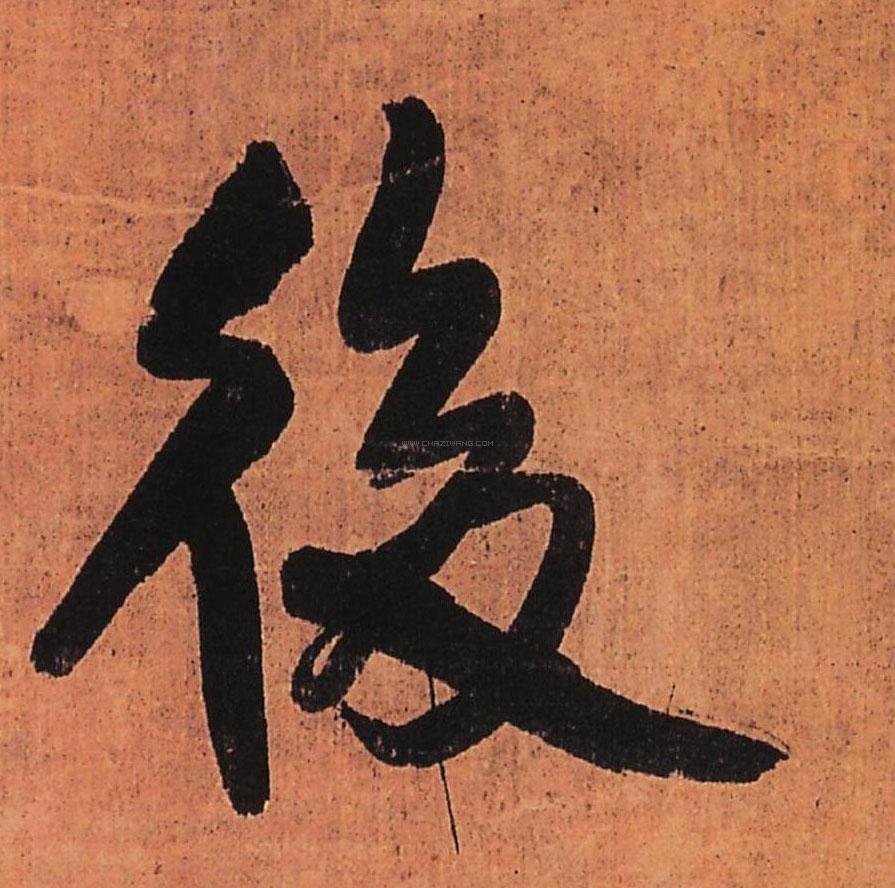 後
WWW.CHAZIWANG.COM